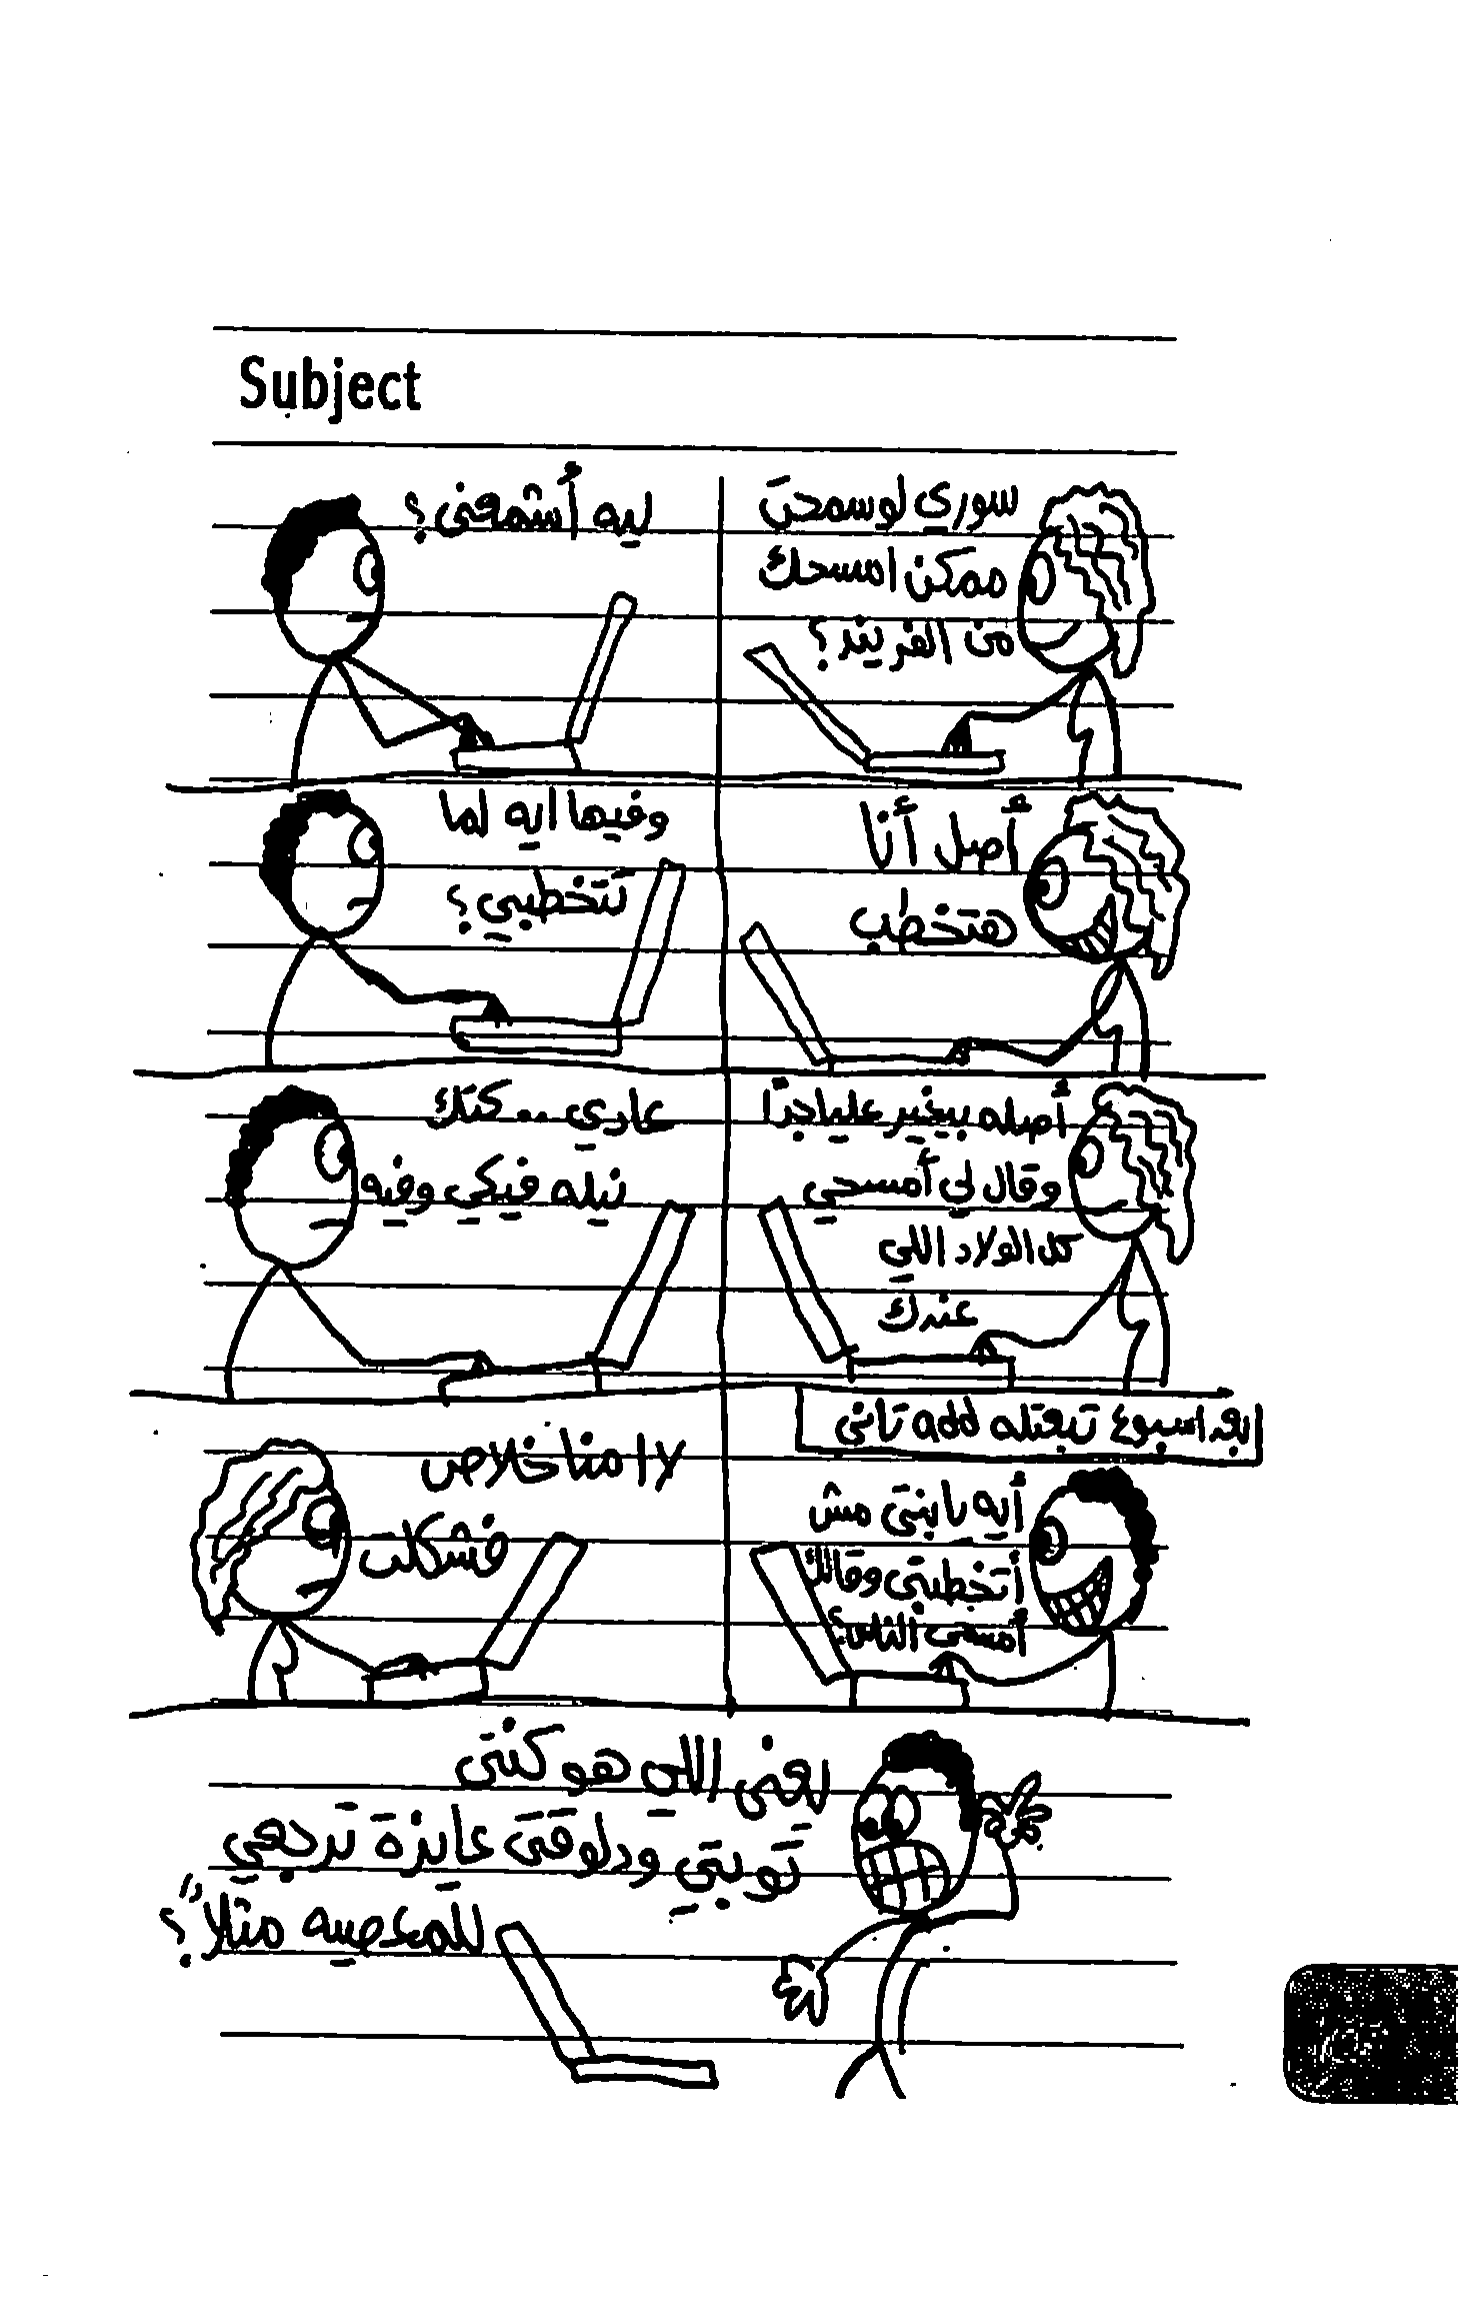 Subject
سوري لو سمحت
ممكن امسحك
من الفريند؟
ليه أشمعنى؟
أصل أنا
هتخطب
وفيها ايه لما
تتخطبي؟
أصله بيغير عليا جدًا
وقال لي أمسحي
كل الولاد اللي
عندك
عادي .. كتك
نيله فيكي وفيه
بعد اسبوع تبعتله add تاني
أيه يا بنتي مش
أتخطبتي وقالك
أمسحي الناس؟
لا ا منا خلاص
فشكلت
يعني اللي هو كنتي
توبتي ودلوقتي عايزة ترجعي
للمعصيه مثلاً؟